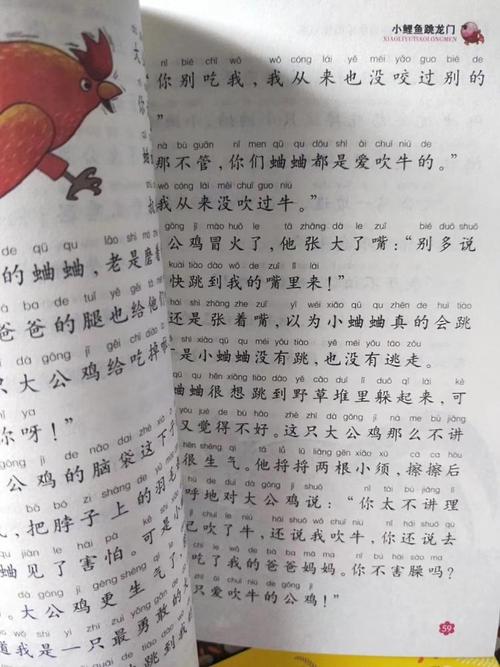 de qū qu lǎo shì mó
的蛐蛐，老是磨着
bà ba de tuǐ yě gěi tā
爸爸的腿也给他
dà gōng jī gěi chī diào
只大公鸡给吃掉
nǐ ya
你呀！”
gōng jī de nǎo dai zhè xià zi
公鸡的脑袋这下子
bǎ bó zi shàng de yǔ máo
，把脖子上的羽毛
qu jiàn le hài pà
蛐见了害怕。可是小
dà gōng jī gèng shēng qì le
。大公鸡更生气了，
wǒ shì yì zhī zuì yǒng gǎn de dà
道我是一只最勇敢的大
跳到我的
小鲤鱼跳龙门
XIAOLIYUTIAOLONGMEN
nǐ bié chī wǒ wǒ cóng lái yě méi yǎo guo bié de
“你别吃我，我从来也没咬过别的
nà bù guǎn nǐ men qū qu dōu shì ài chuī niú de
那不管，你们蛐蛐都是爱吹牛的。”
wǒ cóng lái méi chuī guo niú
我从来没吹过牛。”
gōng jī mào huǒ le tā zhāng dà le zuǐ bié duō shuō
公鸡冒火了，他张大了嘴：“别多说
kuài tiào dào wǒ de zuǐ li lái
快跳到我的嘴里来！”
hái shi zhāng zhe zuǐ yǐ wéi xiǎo qū qu zhēn de huì tiào
还是张着嘴，以为小蛐蛐真的会跳
shì xiǎo qū qu méi yǒu tiào yě méi yǒu táo zǒu
是小蛐蛐没有跳，也没有逃走。
qū qu hěn xiǎng tiào dào yě cǎo duī li duǒ qǐ lái kě
蛐蛐很想跳到野草堆里躲起来，可
yòu jué de bù hǎo zhè zhī dà gōng jī nà me bù jiǎng
又觉得不好。这只大公鸡那么不讲
hěn shēng qì tā lǚ lǚ liǎng gēn xiǎo xū cā ca hòu
很生气。他捋捋两根小须，擦擦后
hū de duì dà gōng jī shuō nǐ tài bù jiǎng lǐ
呼地对大公鸡说：“你太不讲理
jǐ chuī le niú hái shuō wǒ chuī niú nǐ hái shuō qù
己吹了牛，还说我吹牛，你还说去
chī le wǒ de bà ba mā ma nǐ bú hài sào ma
吃了我的爸爸妈妈。你不害臊吗？
zhī ài chuī niú de gōng jī
只爱吹牛的公鸡！”
59